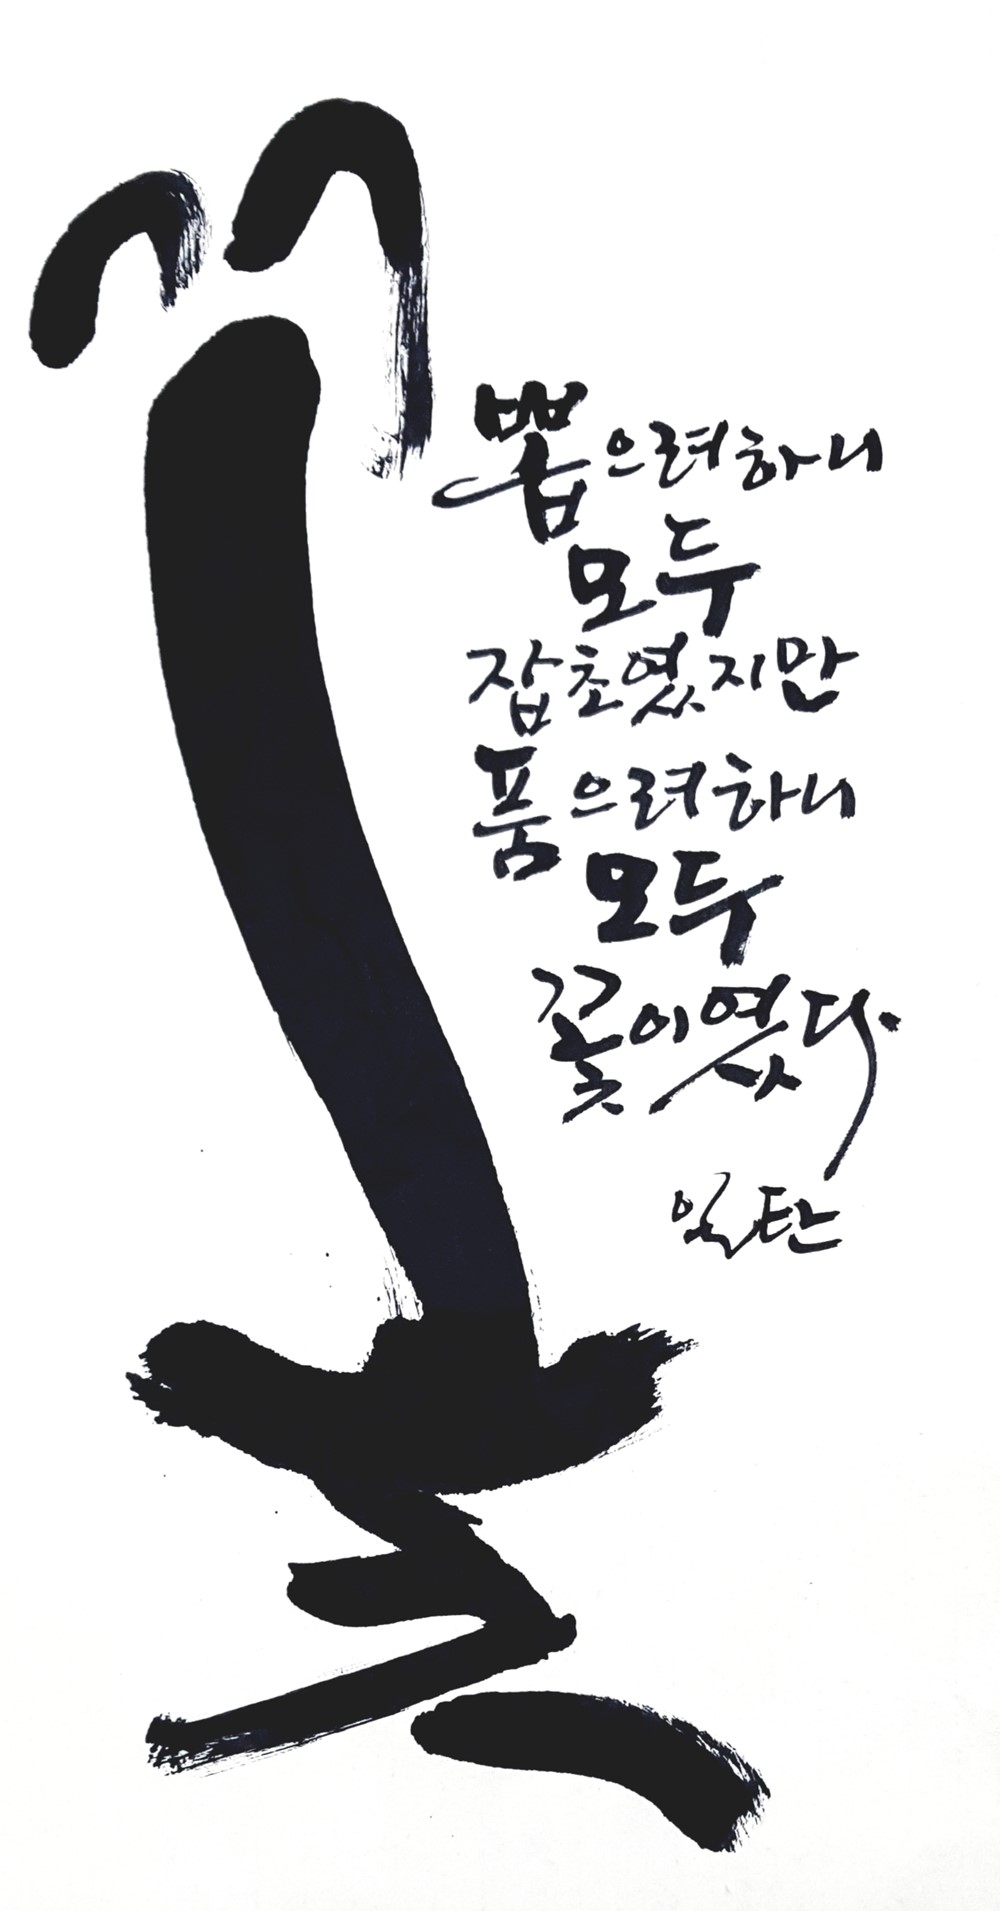 꽃
뽑으려하니
모두
잡초였지만
품으려하니
모두
꽃이였다.
일탄